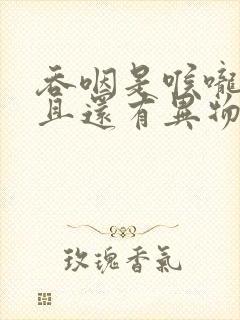 吞咽是喉嚨
且還有異物
玫瑰香氣